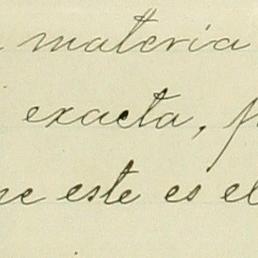 materia
exacta,
este es el